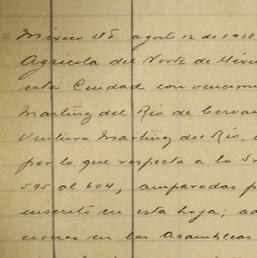 México D.F. agosto 12 de 1938
Agrícola del Norte de Méxi
esta Ciudad con vencim
Martínez del Río de Cervan
Ventura Martínez del Río,
por lo que respecta a la Sr
595 al 604, amparadas p
inscrito en esta hoja; ad
ciones en las Asambleas